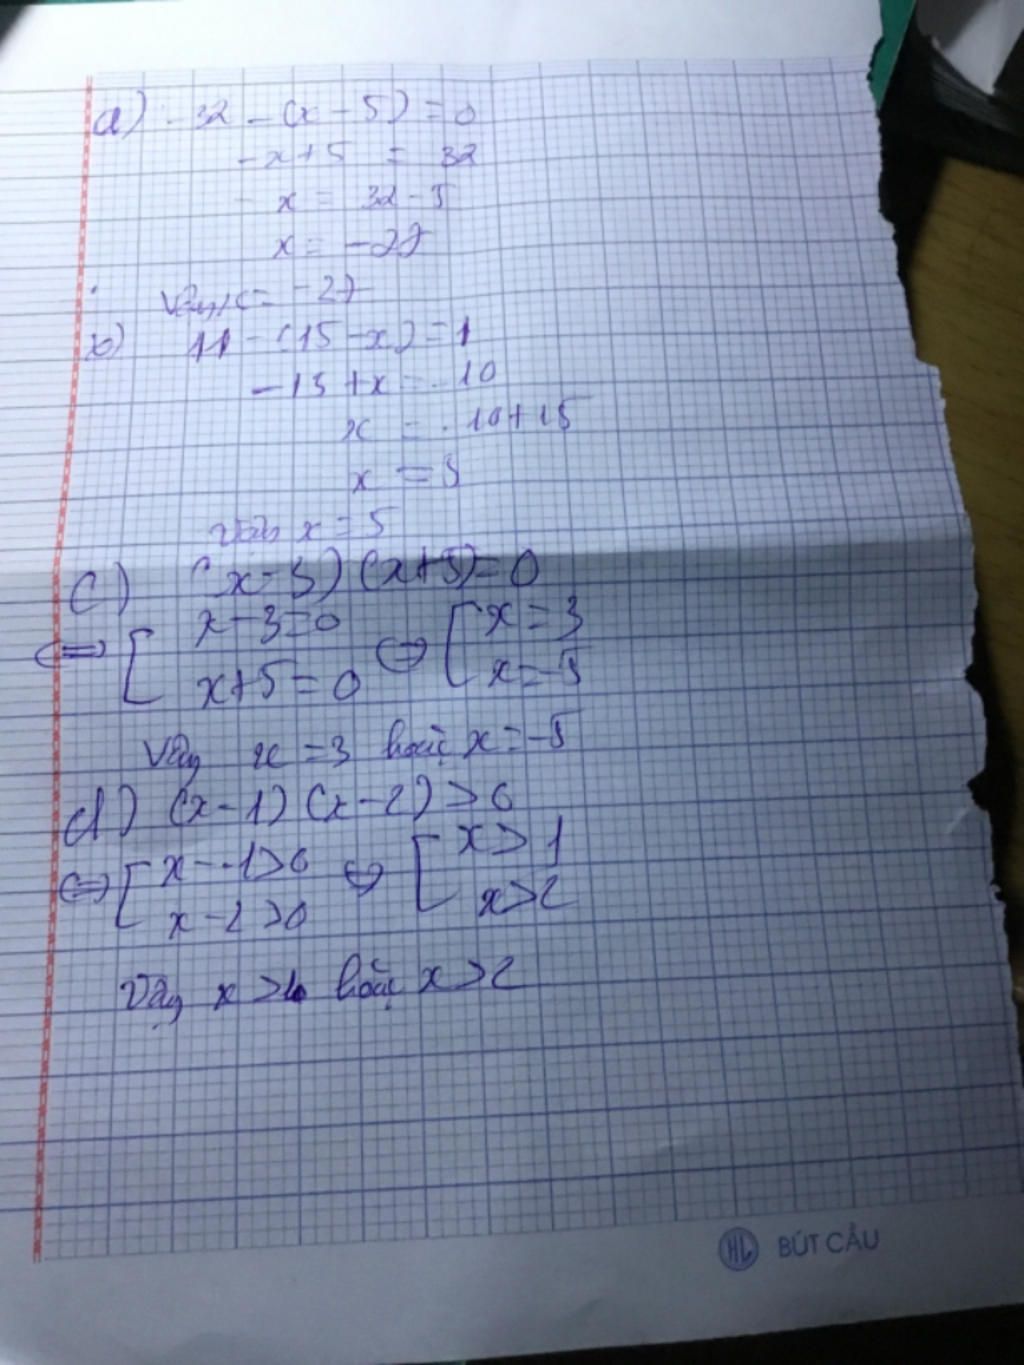 a) -32 - (x - 5) = 0
-x+5 = 32
- x = 32 - 5
x = -27
Vậy x = -27
b) 11 - (15 - x) = 1
-15 + x = -10
x = -10+15
x = 5
Vậy x = 5
c) (x-3) (x+5) = 0
⇔ [ x - 3 = 0 ⇔ [ x = 3
x+5 = 0 x = -5
Vậy x = 3 hoặc x = -5
d) (x-1) (x-2) > 0
⇔ [ x - 1 > 0 ⇔ [ x > 1
x - 2 > 0 x > 2
Vậy x > 1 hoặc x > 2
HL BÚT CẦU